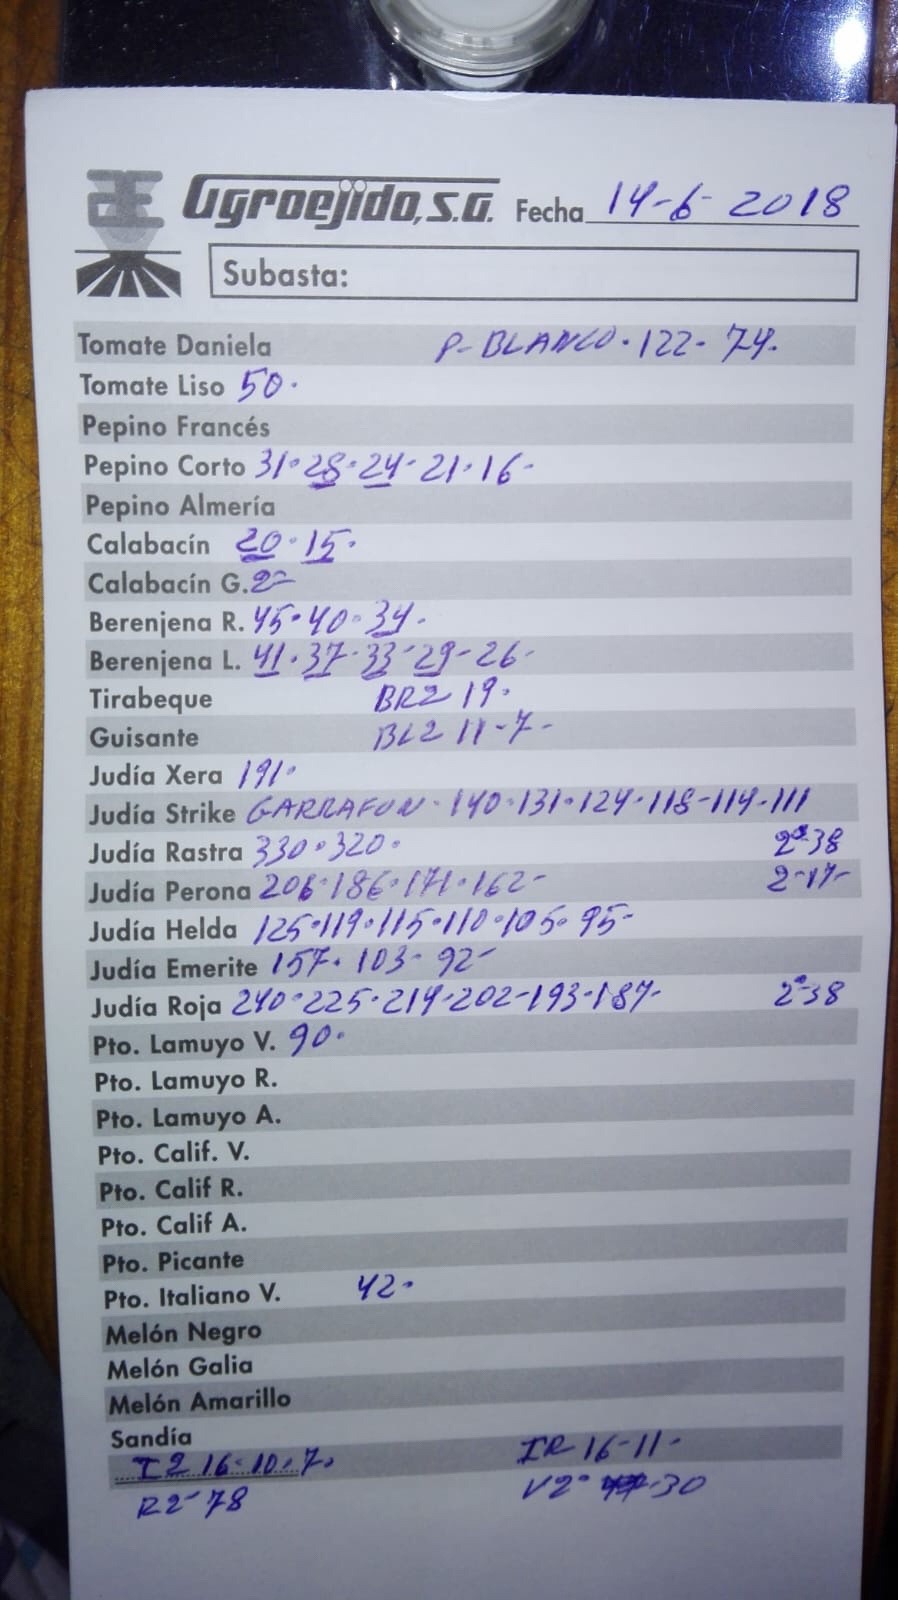 Agroejido, S.A. Fecha 14-6-2018
Subasta:
Tomate Daniela P-BLANCO. 122- 74.
Tomate Liso 50.
Pepino Francés
Pepino Corto 31.28.24.21.16-
Pepino Almería
Calabacín 20.15.
Calabacín G. 2-
Berenjena R. 45.40.34.
Berenjena L. 41.37.33-29-26-
Tirabeque BR2 19.
Guisante BL2 11-7-
Judía Xera 191.
Judía Strike GARRAFON. 140.131.124.118-114.111
Judía Rastra 330.320. 2ª-38
Judía Perona 206.186.171.162- 2-17-
Judía Helda 125.119.115.110.105.95-
Judía Emerite 157. 103. 92-
Judía Roja 240.225.214-202-193-187- 2ª-38
Pto. Lamuyo V. 90.
Pto. Lamuyo R.
Pto. Lamuyo A.
Pto. Calif. V.
Pto. Calif R.
Pto. Calif A.
Pto. Picante
Pto. Italiano V. 42.
Melón Negro
Melón Galia
Melón Amarillo
Sandía
I2 16-10.7. IR 16-11-
R2-78 V2- 30